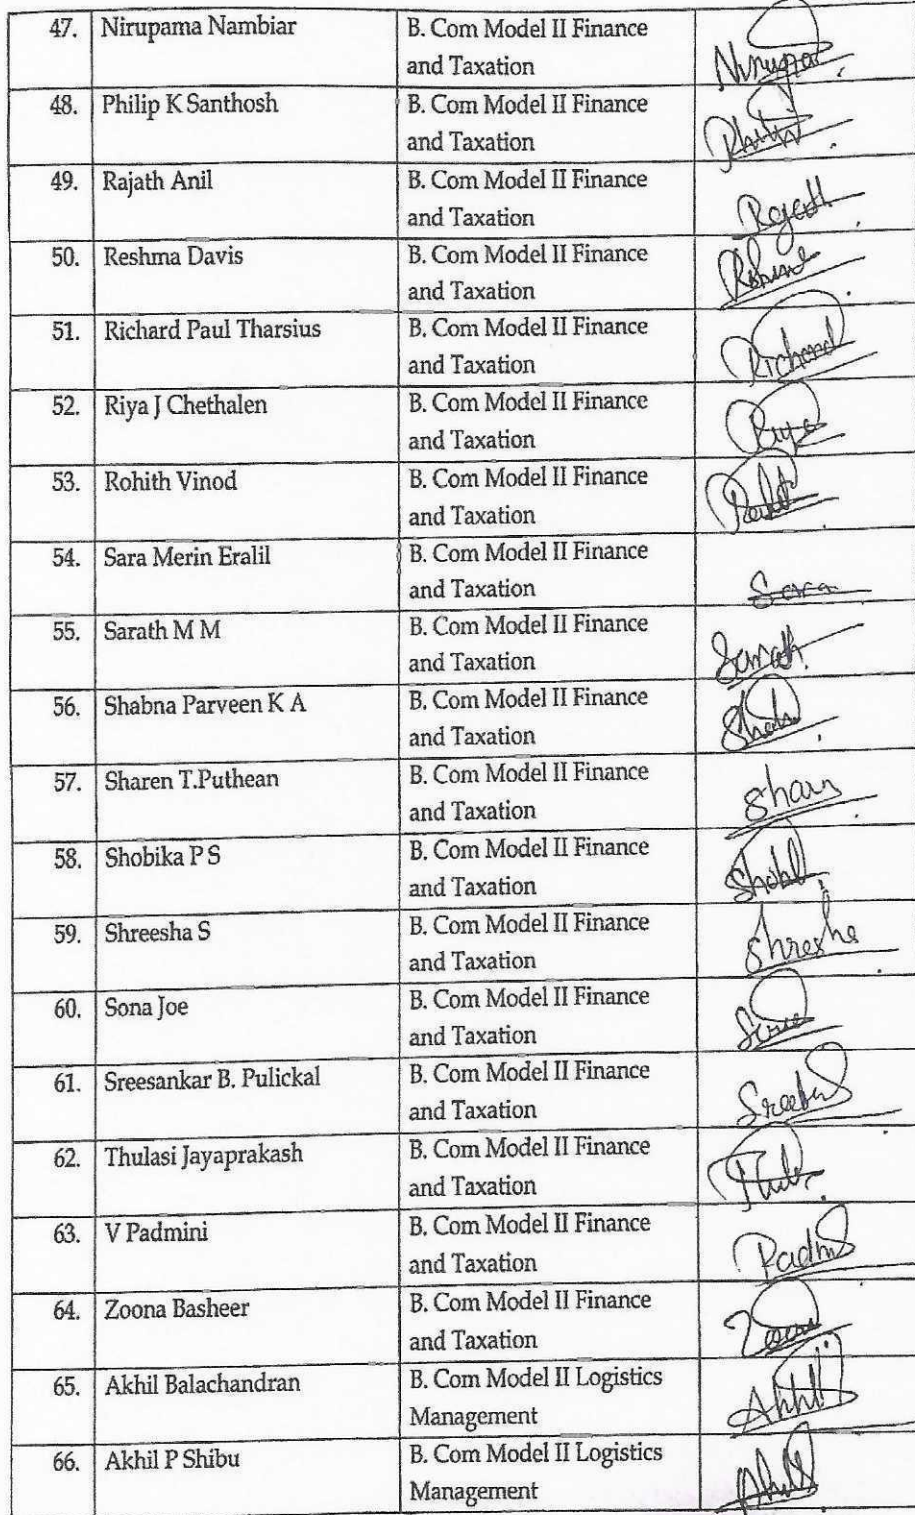 47. Nirupama Nambiar B. Com Model II Finance
and Taxation Nirupa
48. Philip K Santhosh B. Com Model II Finance
and Taxation
49. Rajath Anil B. Com Model II Finance
and Taxation Rajath
50. Reshma Davis B. Com Model II Finance
and Taxation
51. Richard Paul Tharsius B. Com Model II Finance
and Taxation Richard
52. Riya J Chethalen B. Com Model II Finance
and Taxation Riya
53. Rohith Vinod B. Com Model II Finance
and Taxation
54. Sara Merin Eralil B. Com Model II Finance
and Taxation Sara
55. Sarath M M B. Com Model II Finance
and Taxation Sarath
56. Shabna Parveen K A B. Com Model II Finance
and Taxation
57. Sharen T.Puthean B. Com Model II Finance
and Taxation
58. Shobika P S B. Com Model II Finance
and Taxation
59. Shreesha S B. Com Model II Finance
and Taxation
60. Sona Joe B. Com Model II Finance
and Taxation
61. Sreesankar B. Pulickal B. Com Model II Finance
and Taxation
62. Thulasi Jayaprakash B. Com Model II Finance
and Taxation
63. V Padmini B. Com Model II Finance
and Taxation
64. Zoona Basheer B. Com Model II Finance
and Taxation
65. Akhil Balachandran B. Com Model II Logistics
Management Akhil
66. Akhil P Shibu B. Com Model II Logistics
Management